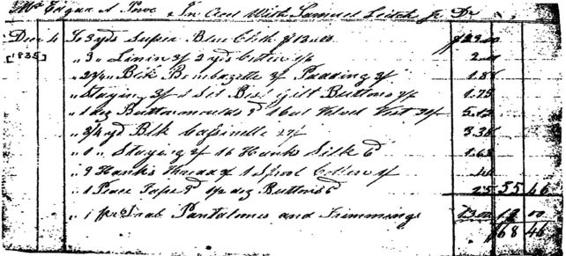 Mr Edgar A Poe In Acct With Samuel Leitch Jr Dr
Dec 4 To 3 yds Super Blue Cloth
[1835] " 3 " Linin 3/ 2 yds Cotton 2.00
" Blk Bombazette Padding 1.88
" Staying 2 Set Best Gilt Buttons 1.75
" 1 doz Buttonmoulds 1 Cut Velvet Vest 5.12
" 3/4 yd Blk Cassinette 3.38
" 1 " Staying 16 Hanks Silk 1.63
" 9 Hanks Thread 1 Spool Cotton
1 Piece Tape doz Buttons 25 55 46
" 1 pr Drab Pantaloons and Trimmings 13.00 13 00
68 46